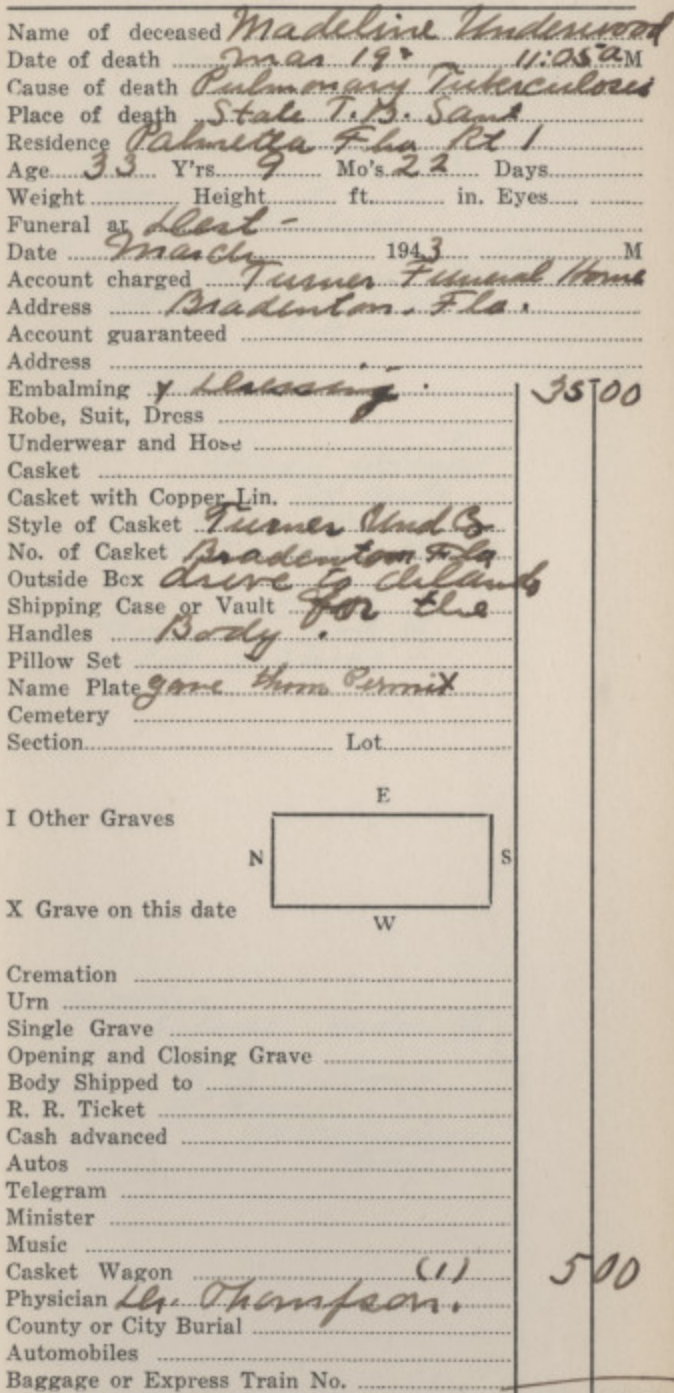 Name of deceased Madeline Underwood
Date of death Mar 19 11:05 a M
Cause of death Pulmonary Tuberculosis
Place of death State T.B. San
Residence Palmetta Fla Rt 1
Age 33 Y'rs 9 Mo's 22 Days
Weight Height ft. in. Eyes
Funeral at
Date March 1943 M
Account charged Turner Funeral Home
Address Bradenton. Fla.
Account guaranteed
Address
Embalming & Dressing. 35 00
Robe, Suit, Dress
Underwear and Hose
Casket
Casket with Copper Lin.
Style of Casket Turner Und Co
No. of Casket Bradenton Fla
Outside Box drove to Orlando
Shipping Case or Vault for the
Handles Body.
Pillow Set
Name Plate gave them Permit
Cemetery
Section Lot
E
I Other Graves
N S
X Grave on this date
W
Cremation
Urn
Single Grave
Opening and Closing Grave
Body Shipped to
R. R. Ticket
Cash advanced
Autos
Telegram
Minister
Music
Casket Wagon (1) 5 00
Physician Dr. Thompson.
County or City Burial
Automobiles
Baggage or Express Train No.